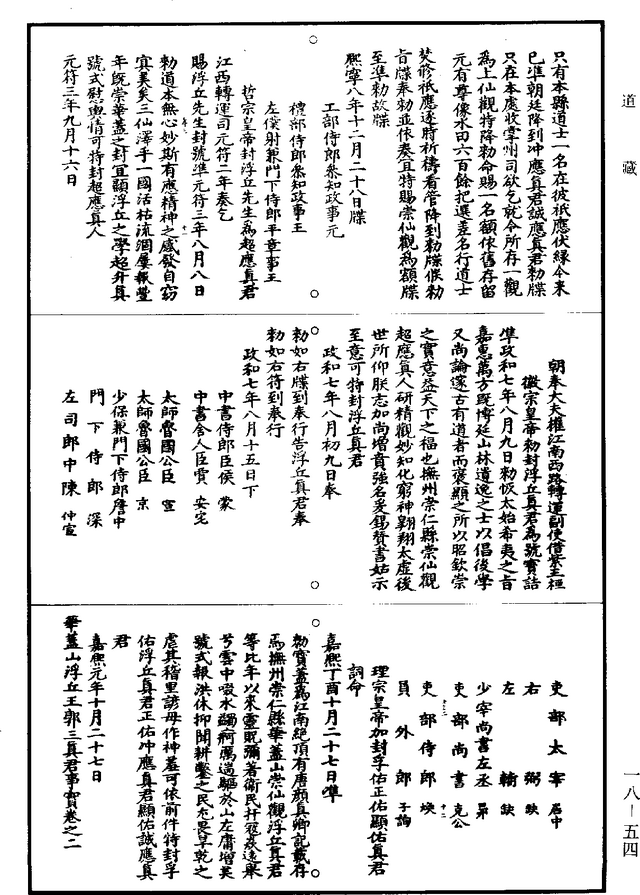 只有本縣道士一名在彼祇應伏緣今來
已準朝廷降到冲應真君誠應真君勑牒
只在本處收掌州司欲乞就令所存一觀
為上仙觀特降勑命賜一名額依舊存留
元有尊像水田六百餘把選差名行道士
焚修祇應逐時祈禱看管降到勑牒候勑
旨牒奉勑並依奏宜特賜崇仙觀為額牒
至準勑故牒
熙寧八年十二月二十八日牒
工部侍郎叅知政事元
禮部侍郎叅知政事王
左僕射兼門下侍郎平章事王
哲宗皇帝封浮丘先生為超應真君
江西轉運司元符二年奏乞
賜浮丘先生封號準元符三年八月八日
勑道本無心妙斯有應精神之感發自窈
冥美矣三仙澤乎一國活枯流涸屢報豐
年旣崇華蓋之封宜顯浮丘之學超升真
號式慰輿情可特封超應真人
元符三年九月十六日
朝奉大夫權江南西路轉運副使借紫王桓
徽宗皇帝勑封浮丘真君為號實誥
準政和七年八月九日勑恢太始希夷之旨
嘉惠萬方旣博延山林遺逸之士以倡後學
又尚論邃古有道者而褒顯之所以昭欽崇
之實意益天下之福也撫州崇仁縣崇仙觀
超應真人研精觀妙知化窮神翱翔太虛後
世所仰朕志加尚增賁強名爰錫贊書姑示
至意可特封浮丘真君
政和七年八月初九日奉
勑如右牒到奉行告浮丘真君奉
勑如右符到奉行
政和七年八月十五日下
中書侍郎臣侯 蒙
中書舍人臣賈 安宅
太師魯國公臣 宣
太師魯國公臣 京
少保兼門下侍郎詹中
門下侍郎 深
左司郎中陳 仲宣
吏部太宰 居中
右弼 缺
左輔 缺
少宰尚書左丞 昂
吏部尚書 克公
吏部侍郎 煥
員外郎 子詢
理宗皇帝加封孚佑正佑顯佑真君
詞命
嘉熙丁酉十月二十七日準
勑寶蓋為江南絕頂有唐顏真卿記載存
焉撫州崇仁縣華蓋山崇仙觀浮丘真君
等比年以來靈貺彌著衛民扞寇焱遠舉
兮雲中啜水蠲痾厲遄驅於山左庸增美
號式報洪休抑聞耕鑿之民尤畏旱乾之
虐其稽里諺毋作神羞可依前件特封孚
佑浮丘真君正佑冲應真君顯佑誠應真
君
嘉熙元年十月二十七日
華蓋山浮丘王郭三真君事實卷之二
道藏
一八-五四